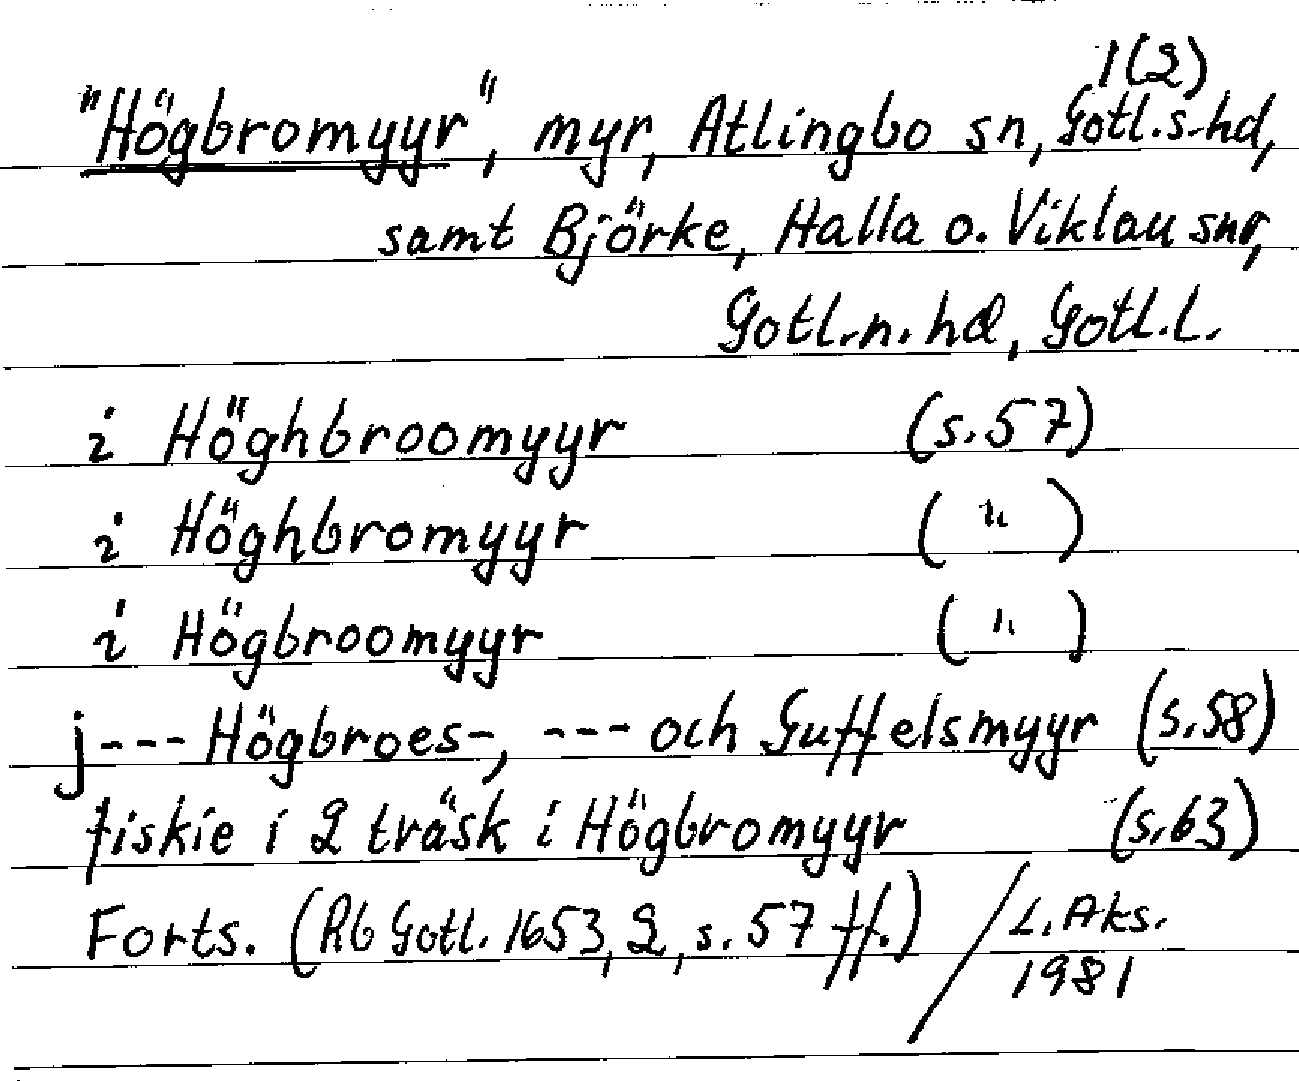 1(2)
"Högbromyyr", myr, Atlingbo sn, Gotl.s.hd,
samt Björke, Halla o. Viklau snr,
Gotl.n.hd, Gotl.l.
i Höghbroomyyr (s.57)
i Höghbromyyr ( " )
i Högbroomyyr ( " )
j --- Högbroes-, --- och Guffelsmyyr (s.58)
fiskie i 2 träsk i Högbromyyr (s.63)
Forts. (Rb Gotl. 1653, 2, s. 57 ff.) / L. Aks.
1981